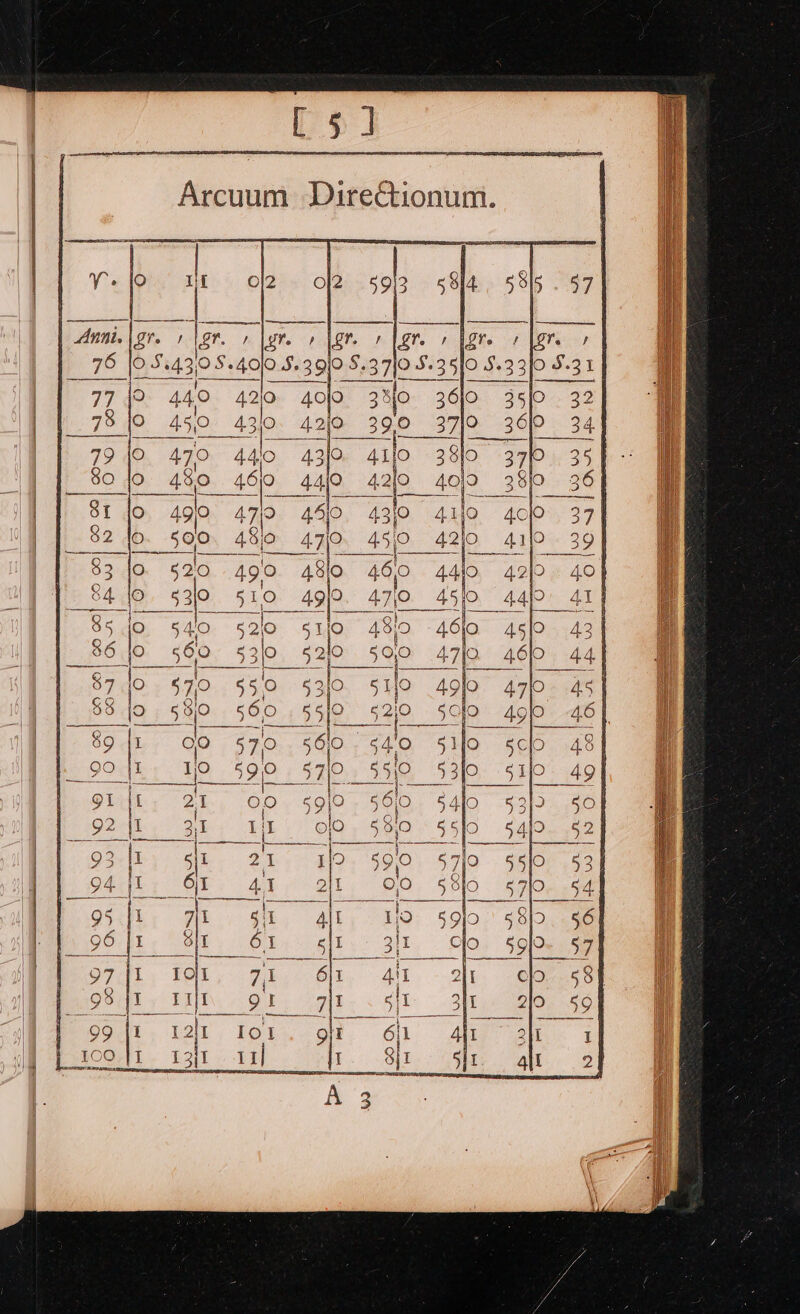 [ 5 ]
Arcuum Directionum.
♈. 0 1 1 0 2 0 2 59 3 58 4 58 5 57
Anni. gr. ′ gr. ′ gr. ′ gr. ′ gr. ′ gr. ′ gr. ′
76 0 S.43 0 S.40 0 S.39 0 S.37 0 S.35 0 S.33 0 S.31
77 0 44 0 42 0 40 0 38 0 36 0 35 0 32
78 0 45 0 43 0 42 0 39 0 37 0 36 0 34
79 0 47 0 44 0 43 0 41 0 38 0 37 0 35
80 0 48 0 46 0 44 0 42 0 40 0 38 0 36
81 0 49 0 47 0 45 0 43 0 41 0 40 0 37
82 0 50 0 48 0 47 0 45 0 42 0 41 0 39
83 0 52 0 49 0 48 0 46 0 44 0 42 0 40
84 0 53 0 51 0 49 0 47 0 45 0 44 0 41
85 0 54 0 52 0 51 0 48 0 46 0 45 0 43
86 0 56 0 53 0 52 0 50 0 47 0 46 0 44
87 0 57 0 55 0 53 0 51 0 49 0 47 0 45
88 0 58 0 56 0 55 0 52 0 50 0 49 0 46
89 1 0 0 57 0 56 0 54 0 51 0 50 0 48
90 1 1 0 59 0 57 0 55 0 53 0 51 0 49
91 1 2 1 0 0 59 0 56 0 54 0 53 0 50
92 1 3 1 1 1 0 0 58 0 55 0 54 0 52
93 1 5 1 2 1 1 0 59 0 57 0 55 0 53
94 1 6 1 4 1 2 1 0 0 58 0 57 0 54
95 1 7 1 5 1 4 1 1 0 59 0 58 0 56
96 1 8 1 6 1 5 1 3 1 0 0 59 0 57
97 1 10 1 7 1 6 1 4 1 2 1 0 0 58
98 1 11 1 9 1 7 1 5 1 3 1 2 0 59
99 1 12 1 10 1 9 1 6 1 4 1 3 1 1
100 1 13 1 11 1 8 1 5 1 4 1 2
A 3